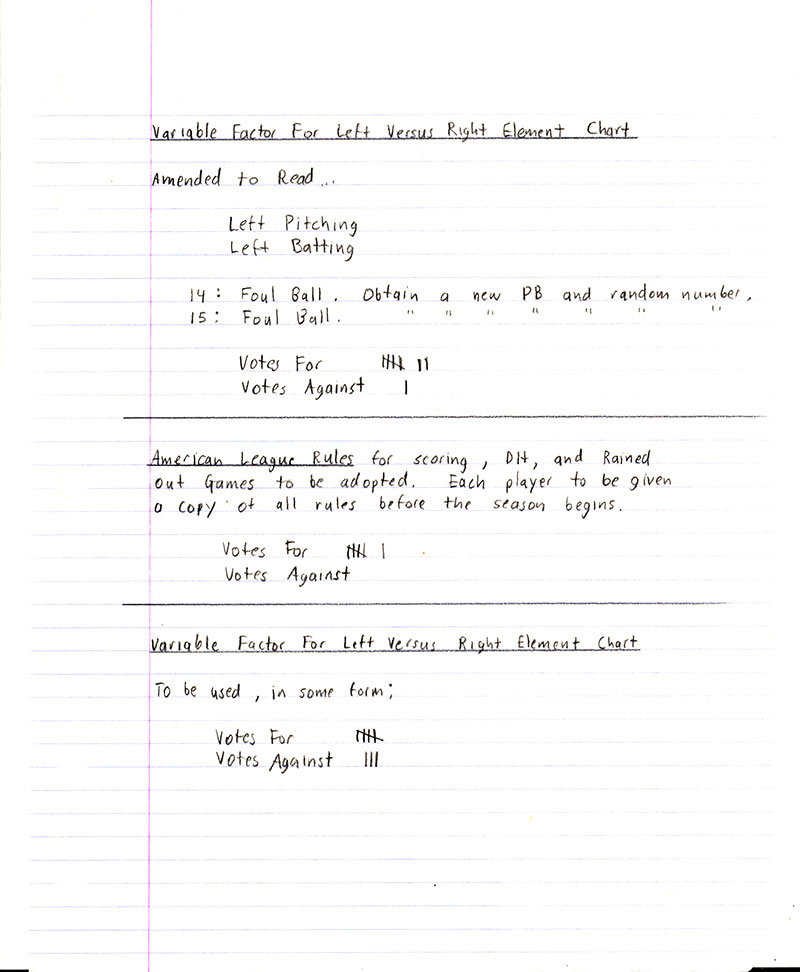 Variable Factor For Left Versus Right Element Chart
Amended to Read...
Left Pitching
Left Batting
14: Foul Ball. Obtain a new PB and random number.
15: Foul Ball. " " " " " " "
Votes For 𝍸 ||
Votes Against |
American League Rules for scoring, DH, and Rained
out Games to be adopted. Each player to be given
a copy of all rules before the season begins.
Votes For 𝍸 |
Votes Against
Variable Factor For Left Versus Right Element Chart
To be used, in some form;
Votes For 𝍸
Votes Against |||